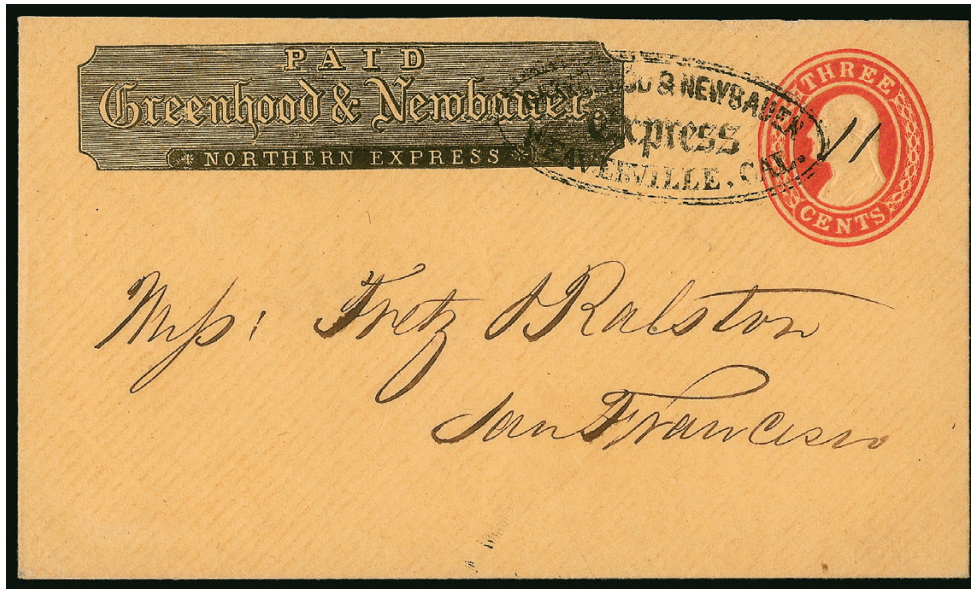 PAID
Greenhood & Newbauer
NORTHERN EXPRESS
GREENHOOD & NEWBAUER
Express
WEAVERVILLE, CAL.
THREE
CENTS
11
Messrs: Fretz & Ralston
San Francisco